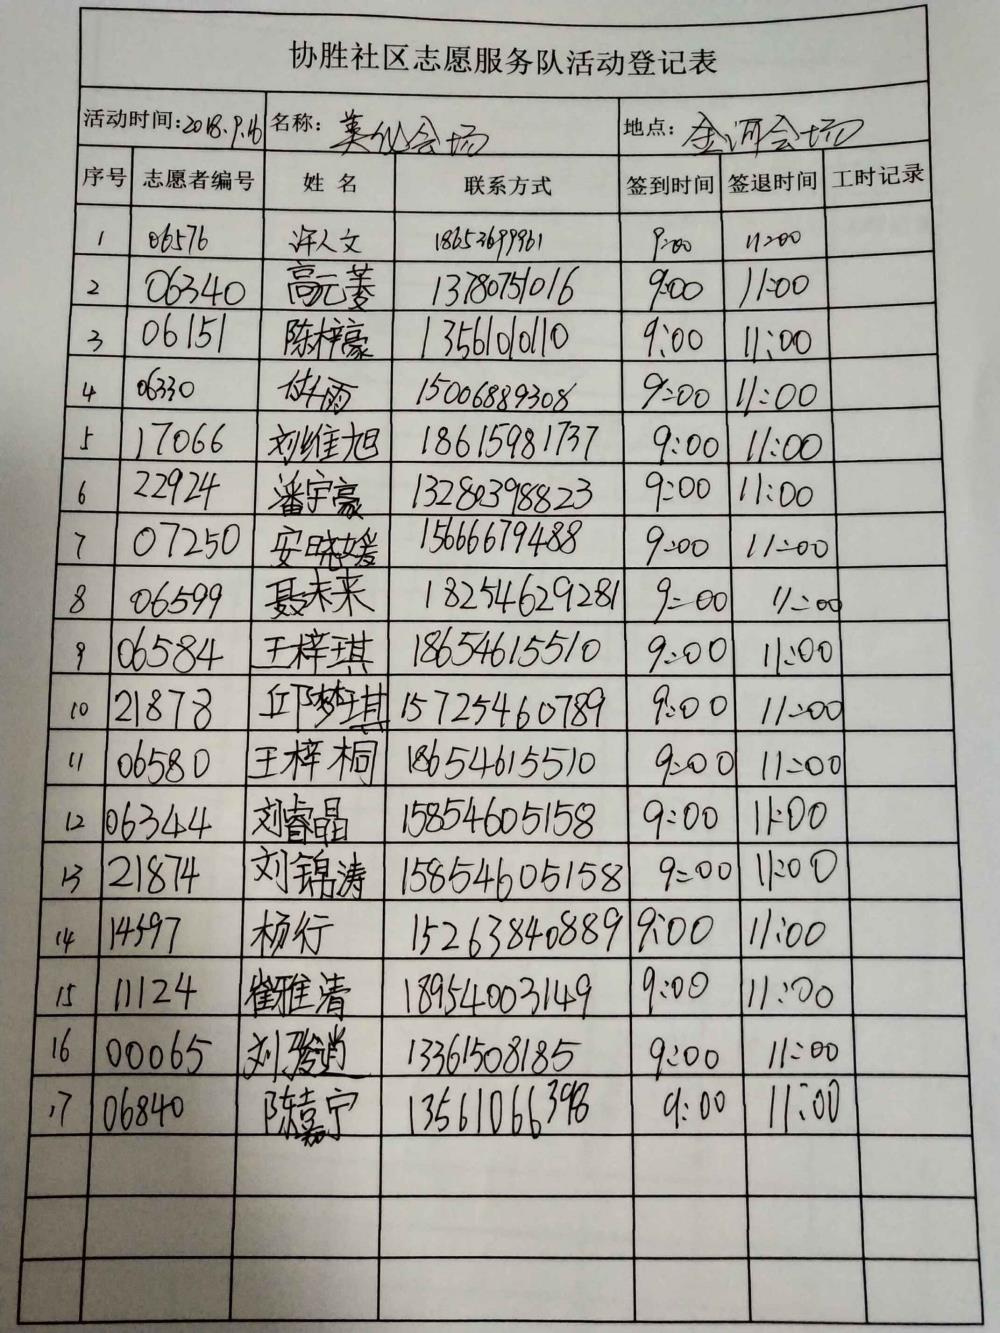 协胜社区志愿服务队活动登记表
活动时间:2018.9.16 名称: 会场 地点: 金河会场
序号 志愿者编号 姓名 联系方式 签到时间 签退时间 工时记录
1 06576 许人文 18653699961 9:00 11:00
2 06340 高元菱 13780751016 9:00 11:00
3 06151 陈梓豪 13561010110 9:00 11:00
4 06330 付雨 15006889308 9:00 11:00
5 17066 刘维旭 18615981737 9:00 11:00
6 22924 潘宇豪 13280398823 9:00 11:00
7 07250 安晓媛 15666679488 9:00 11:00
8 06599 聂未来 18254629281 9:00 11:00
9 06584 王梓琪 18654615510 9:00 11:00
10 21878 邱梦琪 15725460789 9:00 11:00
11 06580 王梓桐 18654615510 9:00 11:00
12 06344 刘睿晶 15854605158 9:00 11:00
13 21874 刘锦涛 15854605158 9:00 11:00
14 14597 杨行 15263840889 9:00 11:00
15 11124 崔雅清 18954003149 9:00 11:00
16 00065 刘骏逍 13361508185 9:00 11:00
17 06840 陈嘉宁 13561066398 9:00 11:00